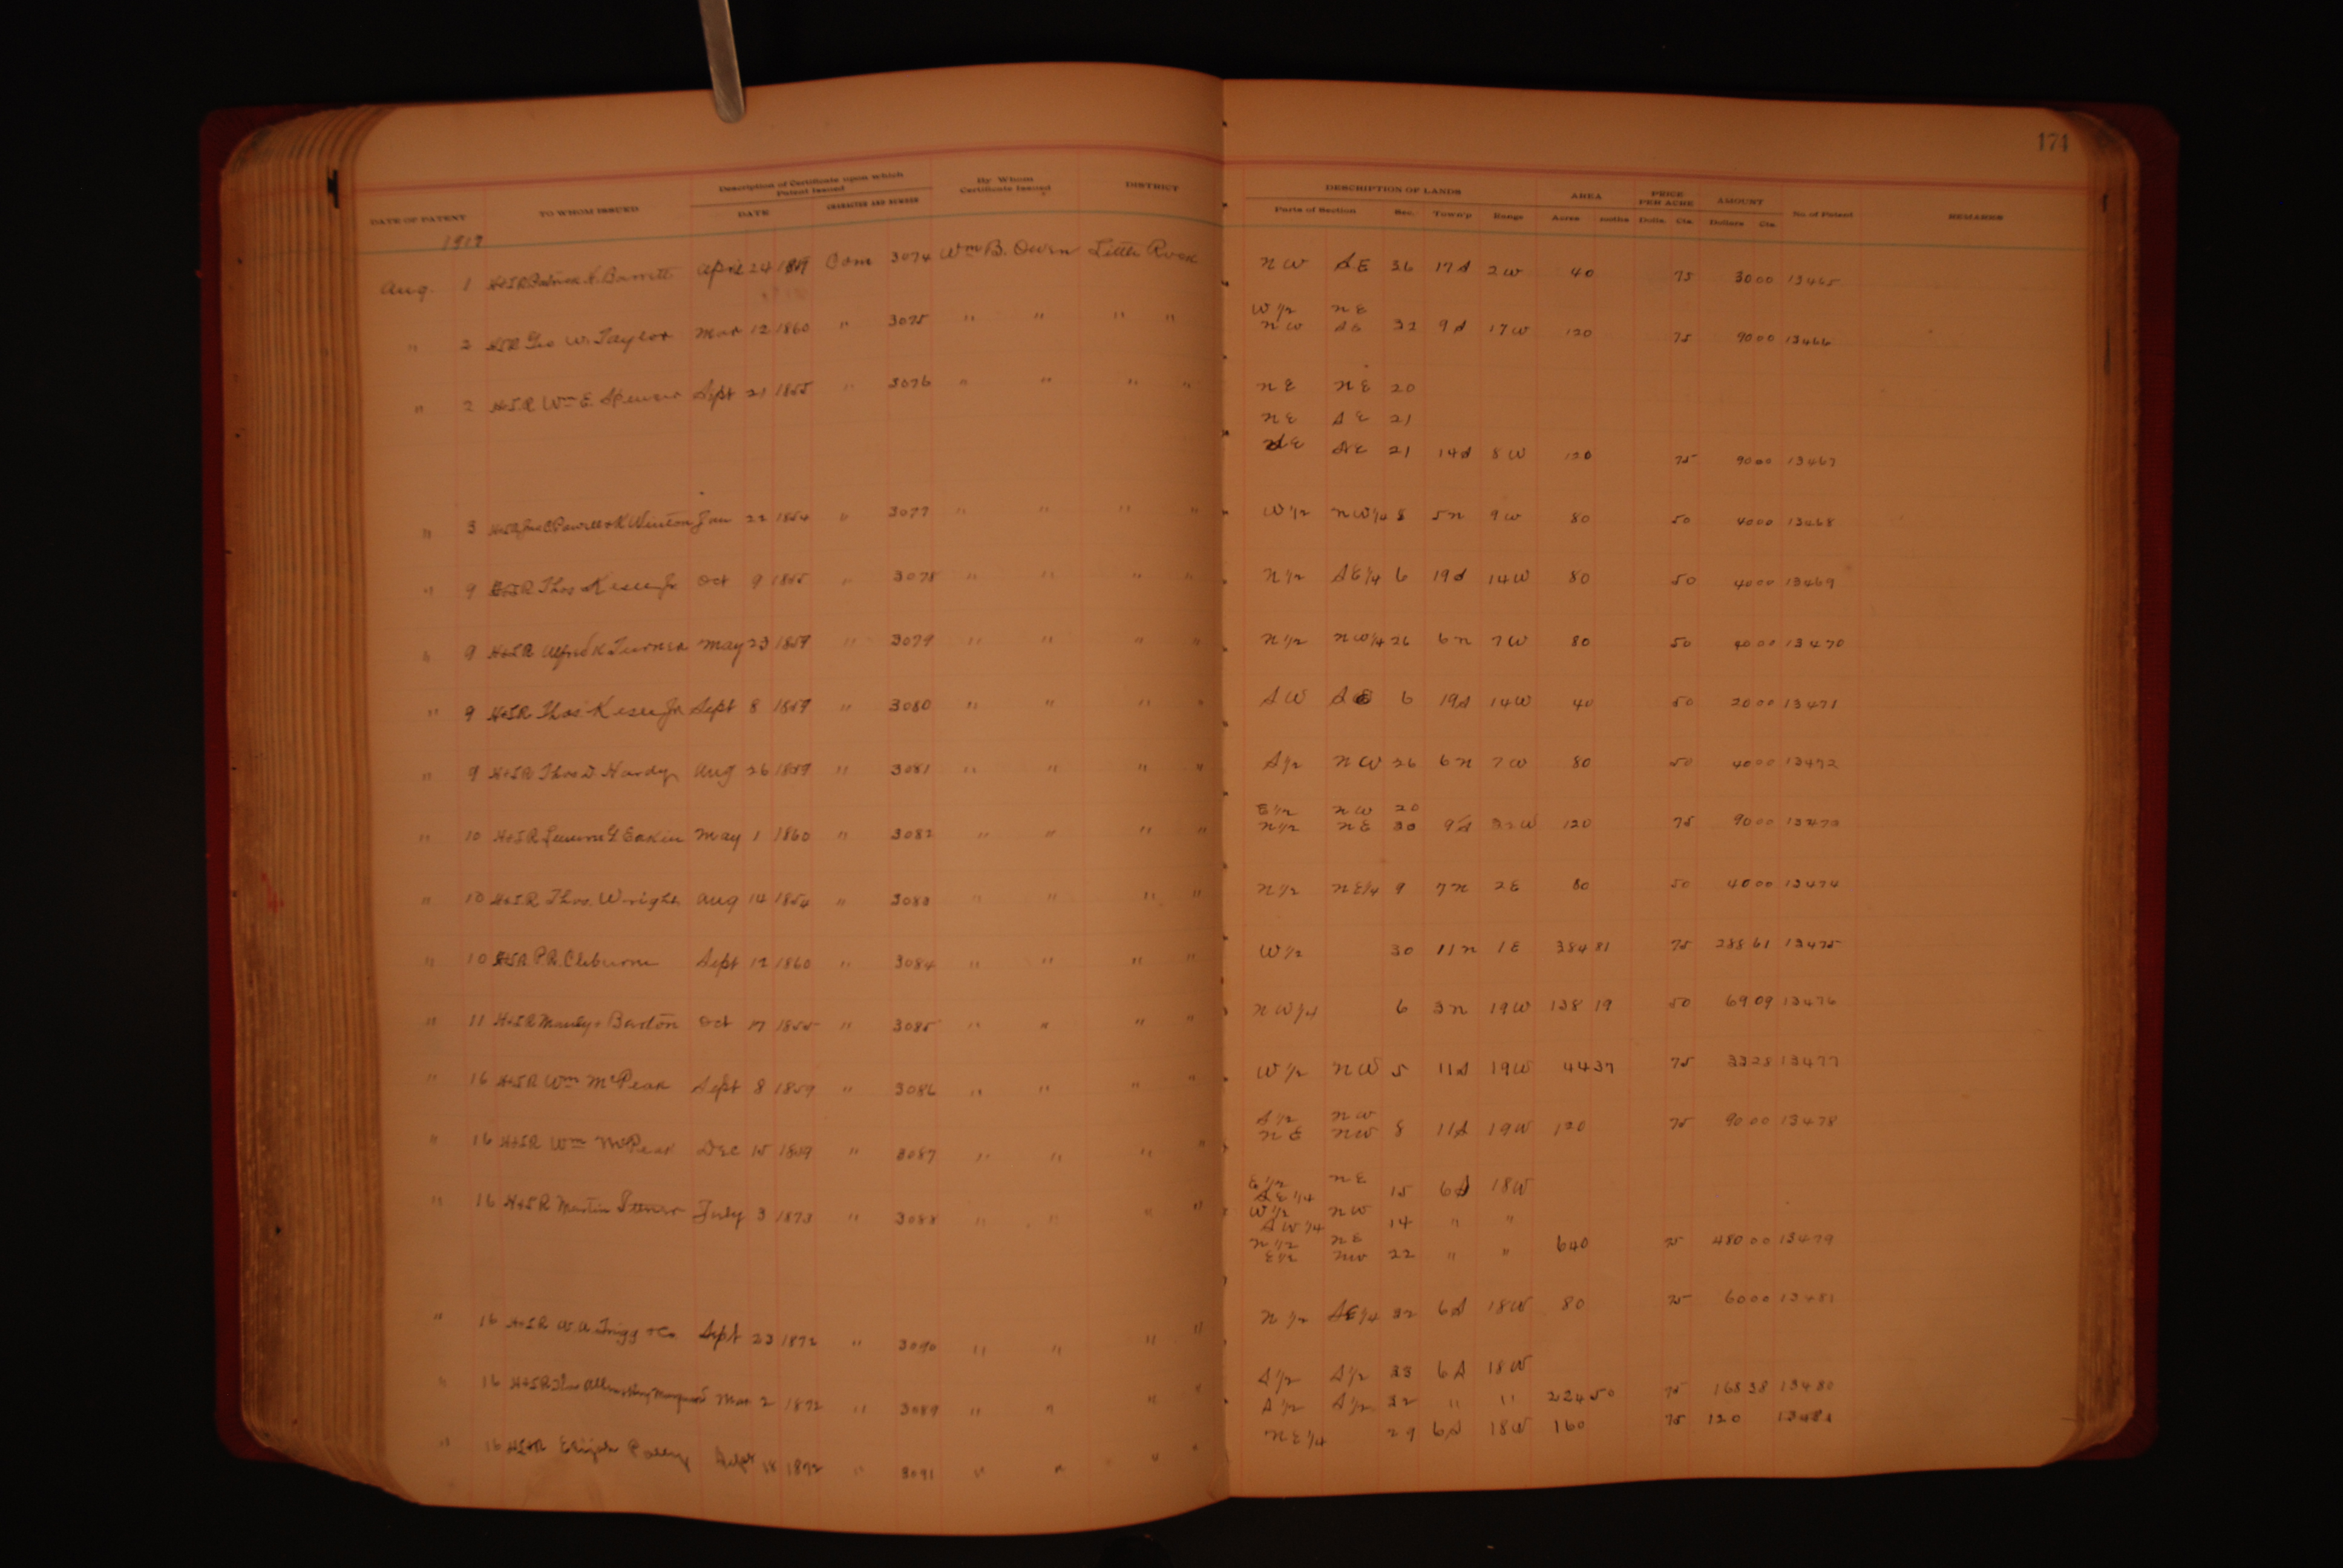 171
DATE OF PATENT TO WHOM ISSUED Description of Certificate upon which Patent Issued DATE CHARACTER AND NUMBER By Whom Certificate Issued DISTRICT DESCRIPTION OF LANDS Parts of Section Sec. Town'p Range AREA Acres PRICE PER ACRE Dolls. Cts. AMOUNT Dollars Cts. No. of Patent REMARKS
1919
Aug. 1 H+I R Patrick H. Barrett April 24 1859 Com 3074 Wm B. Owen Little Rock NW SE 36 17S 2W 40 75 30 00 13465
W 1/2 NE
" 2 Geo W. Taylor Mar 12 1860 " 3075 " " " " NW SE 32 9S 17W 120 75 90 00 13466
" 2 H.I.R Wm E. Spencer Sept 21 1855 " 3076 " " " " NE NE 20
NE SE 21
SE 21 14S 8W 120 75 90 00 13467
" 3 Powell + K Winton Jan 22 1854 " 3077 " " " " W 1/2 NW 1/4 8 5N 9W 80 50 40 00 13468
" 9 Thos Jr Oct 9 1855 " 3078 " " " " N 1/2 SE 1/4 6 19S 14W 80 50 40 00 13469
" 9 H+I R Alfred K Turner May 23 1859 " 3079 " " " " N 1/2 NW 1/4 26 6N 7W 80 50 40 00 13470
" 9 H+I R Thos Jr Sept 8 1859 " 3080 " " " " SW SE 6 19S 14W 40 50 20 00 13471
" 9 H+I R Thos D. Hardy Aug 26 1859 " 3081 " " " " S 1/2 NW 26 6N 7W 80 50 40 00 13472
E 1/2 NW 20
" 10 H+I R Eakin May 1 1860 " 3082 " " " " N 1/2 NE 30 9S 22W 120 75 90 00 13473
" 10 H+I R Thos. Wright Aug 14 1854 " 3083 " " " " N 1/2 NE 1/4 9 7N 2E 80 50 40 00 13474
" 10 P.R. Cleburne Sept 12 1860 " 3084 " " " " W 1/2 30 11N 1E 384 81 75 288 61 13475
" 11 H+I R Barton Oct 17 1855 " 3085 " " " " NW 1/4 6 3N 19W 138 19 50 69 09 13476
" 16 H+I R Wm McPeak Sept 8 1859 " 3086 " " " " W 1/2 NW 5 11S 19W 44 37 75 33 28 13477
S 1/2 NW
" 16 H+I R Wm McPeak Dec 15 1859 " 3087 " " " " NE NW 8 11S 19W 120 75 90 00 13478
E 1/2 NE
" 16 H+I R Martin July 3 1873 " 3088 " " " " SE 1/4 15 6S 18W
W 1/2 NW
SW 1/4 14 " "
N 1/2 NE
E 1/2 NW 22 " " 640 75 480 00 13479
" 16 H+I R W.A. Trigg + Co Sept 23 1872 " 3090 " " " " N 1/2 SE 1/4 32 6S 18W 80 75 60 00 13481
S 1/2 S 1/2 33 6S 18W
" 16 H+I R Mar 2 1872 " 3089 " " " " S 1/2 S 1/2 32 " " 224 50 75 168 38 13480
" 16 H+I R Elijah Sept 18 1872 " 3091 " " " " NE 1/4 29 6S 18W 160 75 120